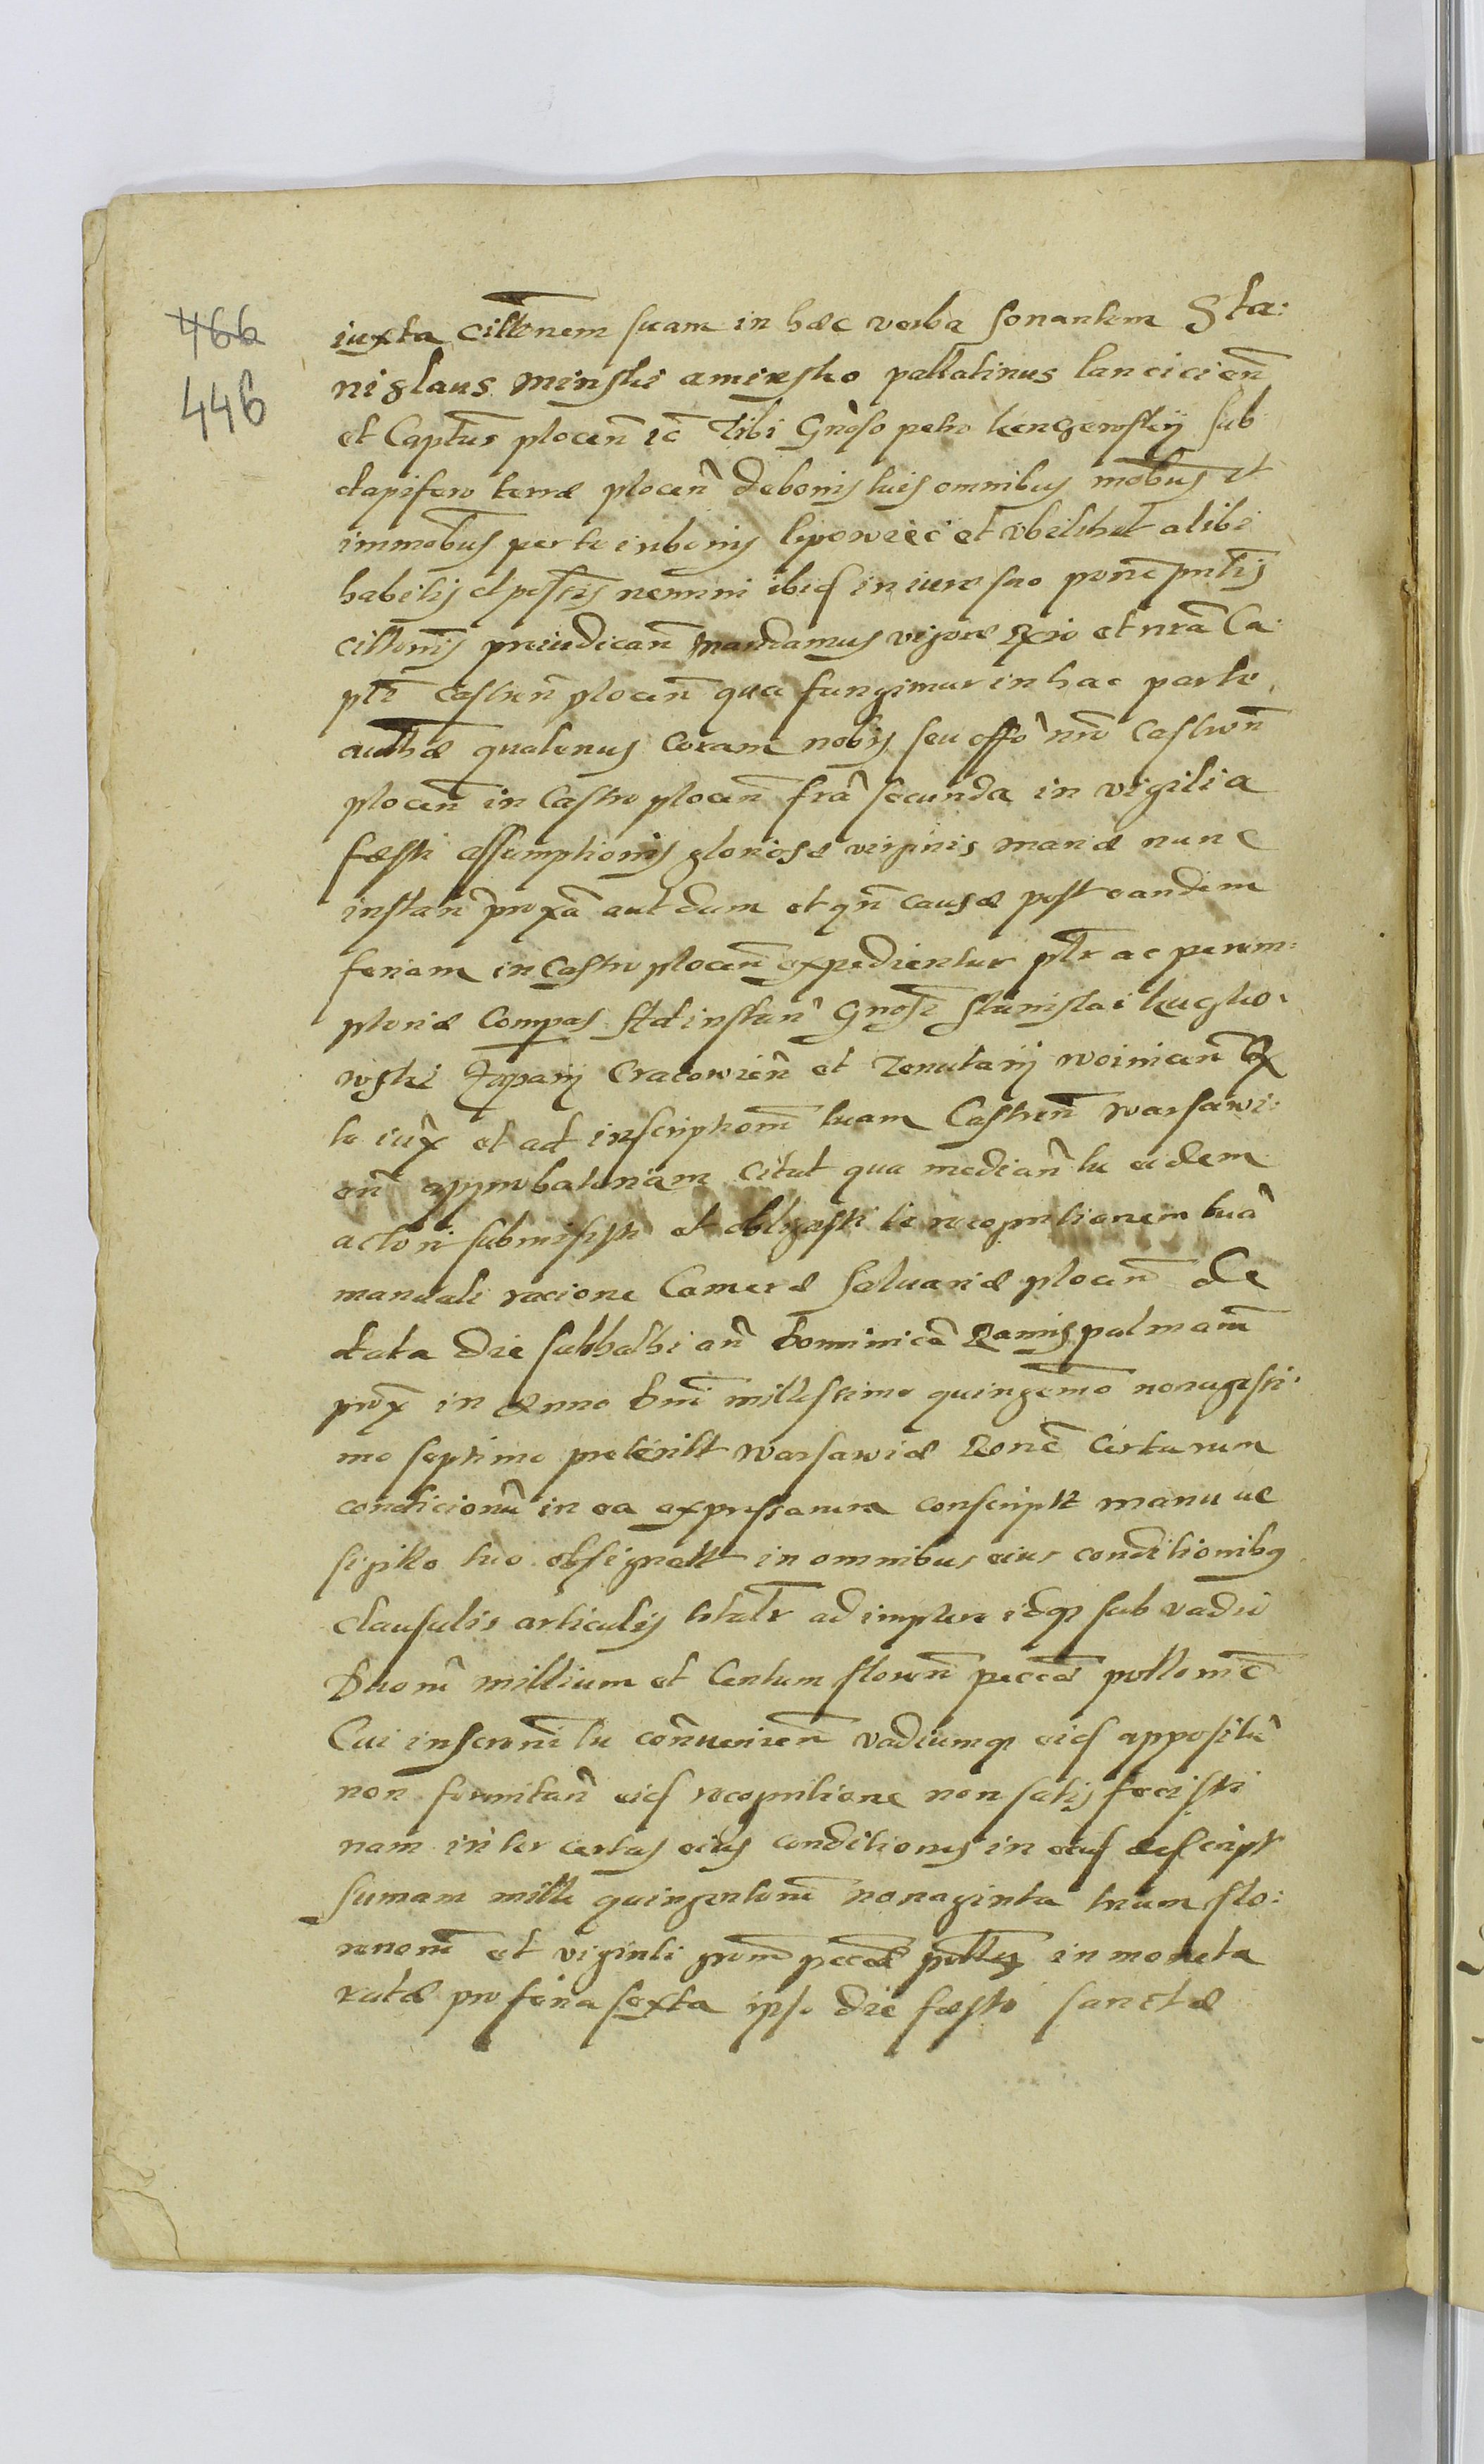 466
446
iuxta citt̄onem suam in hæc verba sonantem Sta:
nislaus Minski a minsko pallatinus lancicien̄
et Capt̄us plocen̄ ic̄ Tibi Gn̄oso petro kengerskÿ sub
dapifero terræ plocen̄ de bonis tuis omnibus mōbus et
immōbus per te in bonis lipowiec et vbilibet alibi
habitis et possīs nemini ibid in iure suo ponē pn̄tis
citt̄onis preiudican̄ mandamus vigore Rio et nrā Ca
pt̄i Castren̄ plocen̄ qua fungimur in hac parte
autt̄hæ quatenus Coram nobis seu offō nrō Castren̄
plocen̄ in Castro plocen̄ frā secunda in vigilia
fæsti assumptionis gloriosæ virginis mariæ nunc
instan̄ proxā aut dum et qn̄ causæ post eandem
feriam in Castro plocen̄ expedientur pt̄r ac perem:
ptoriæ Compas Ad instan̄ Gnosī Stanislai kuglo
wski Zupary Cracowien̄ et Tenutarÿ woinicen̄ Q
te iux̄ et ad inscriptionē tuam Castren̄ warsawi:
en̄ approbatoriam Citat qua median̄ tu eidem
actori submisisti et obligasti te recognitionem tuā
manuale racione Cameræ Saluariæ plocen̄ de
data die sabbathi an̄ dominicā Ramis palmarū
prox̄ in Anno dn̄i millesimo quingēmo nonagesi
mo septimo preterilt warsawiæ Ronē Certarum
condicionū in ea expressarum conscriptt manu ac
sigillo tuo obsignatt in omnibus eius conditionibq
clausulis articulis totalr̄ adimplere idqz sub vadio
Duorū millium et Centum floren̄ peccæ pollonic̄
Cui inscrōni tu con̄uenien̄ vadiumqz eid appositū
non formitan̄ eid recognitione non satis fecisti
nam inter certas eius conditiones in eius descript
sumam mille quingentorū nonaginta trium flo:
renorū et viginti grorū pecæ pollq in moneta
ratæ pro feria sexta ipso die fæsti sanctæ